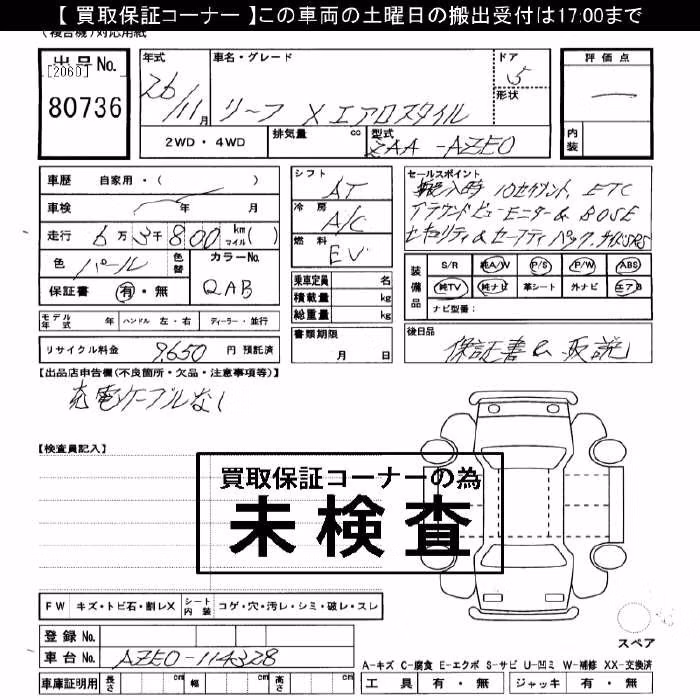 【 買取保証コーナー 】この車両の土曜日の搬出受付は17:00まで
(複合機)対応用紙
出品No.
[2060]
80736
年式 車名・グレード ドア 評価点
26/11月 リーフ X エアロスタイル 5
形状
2WD・4WD 排気量 cc 型式 ZAA-AZE0 内装
車歴 自家用・( )
車検 年 月
走行 6万3千800 km マイル( )
色 パール 色替 カラーNo.
保証書 有・無 QAB
モデル年式 年 ハンドル 左・右 ディーラー・並行
リサイクル料金 9,650 円 預託済
シフト AT
冷房 A/C
燃料 EV
乗車定員 名
積載量 kg
総重量 kg
書類期限
月 日
セールスポイント
搬入時 10セグメント, ETC
アラウンドビューモニター & BOSE
セキュリティ & セーフティパック,
装備品 S/R 純A/W P/S P/W ABS
純TV 純ナビ 革シート 外ナビ エアB
ナビ型番:
後日品
保証書 & 取説
【出品店申告欄(不良箇所・欠品・注意事項等)】
充電ケーブルなし
【検査員記入】
買取保証コーナーの為
未検査
FW キズ・トビ石・割レX シート内装 コゲ・穴・汚レ・シミ・破レ・スレ
登録No.
車台No. AZE0-114328
車庫証明用 長さ cm 幅 cm 高さ cm
スペア
A-キズ C-腐食 E-エクボ S-サビ U-凹ミ W-補修 XX-交換済
工具 有・無 ジャッキ 有・無